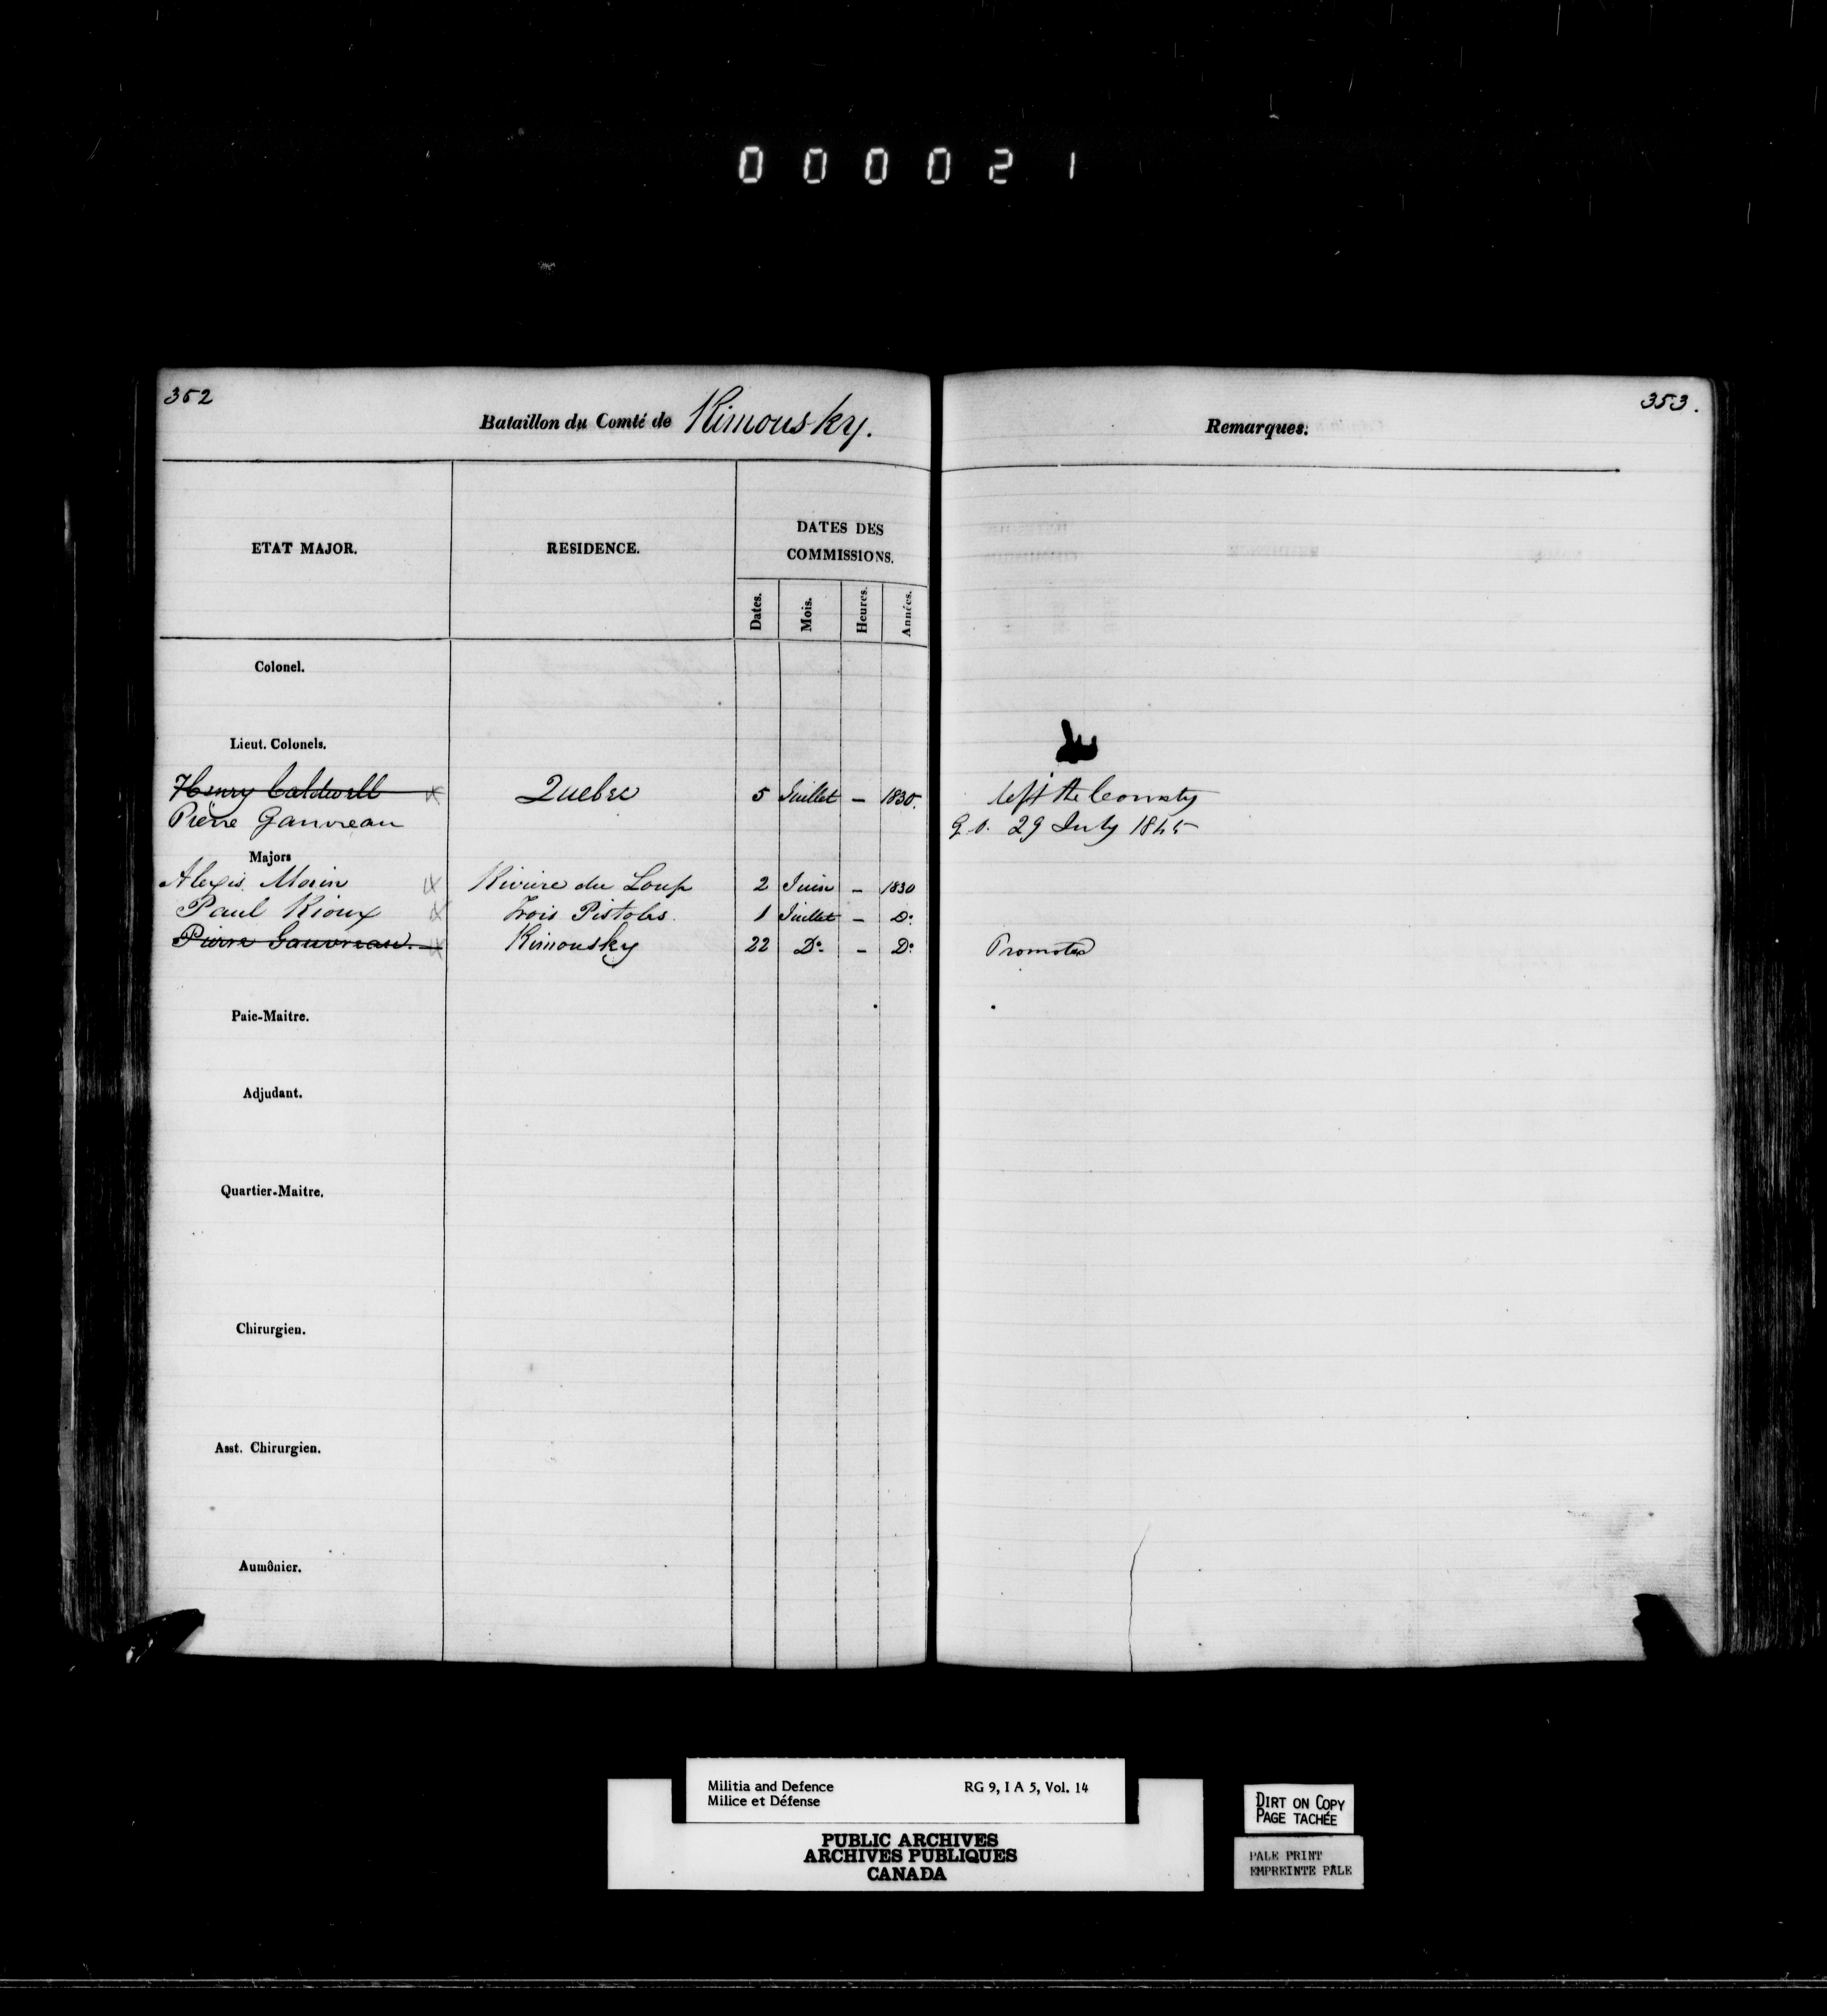 000021
352
Bataillon du Comté de Rimousky.
ETAT MAJOR. RESIDENCE. DATES DES COMMISSIONS.
Dates. Mois. Heures. Années.
Colonel.
Lieut. Colonels.
Henry Caldwell Quebec 5 Juillet – 1830.
Pierre Gauvreau
Majors
Alexis Morin Riviere du Loup 2 Juin – 1830
Paul Rioux Trois Pistoles. 1 Juillet – Do
Pierre Gauvreau. Rimousky 22 Do – Do
Paie-Maitre.
Adjudant.
Quartier-Maitre.
Chirurgien.
Asst. Chirurgien.
Aumônier.
353.
Remarques.
left the County
G.O. 29 July 1845
Promoted
Militia and Defence RG 9, I A 5, Vol. 14
Milice et Défense
PUBLIC ARCHIVES
ARCHIVES PUBLIQUES
CANADA
DIRT ON COPY
PAGE TACHÉE
PALE PRINT
EMPREINTE PÂLE